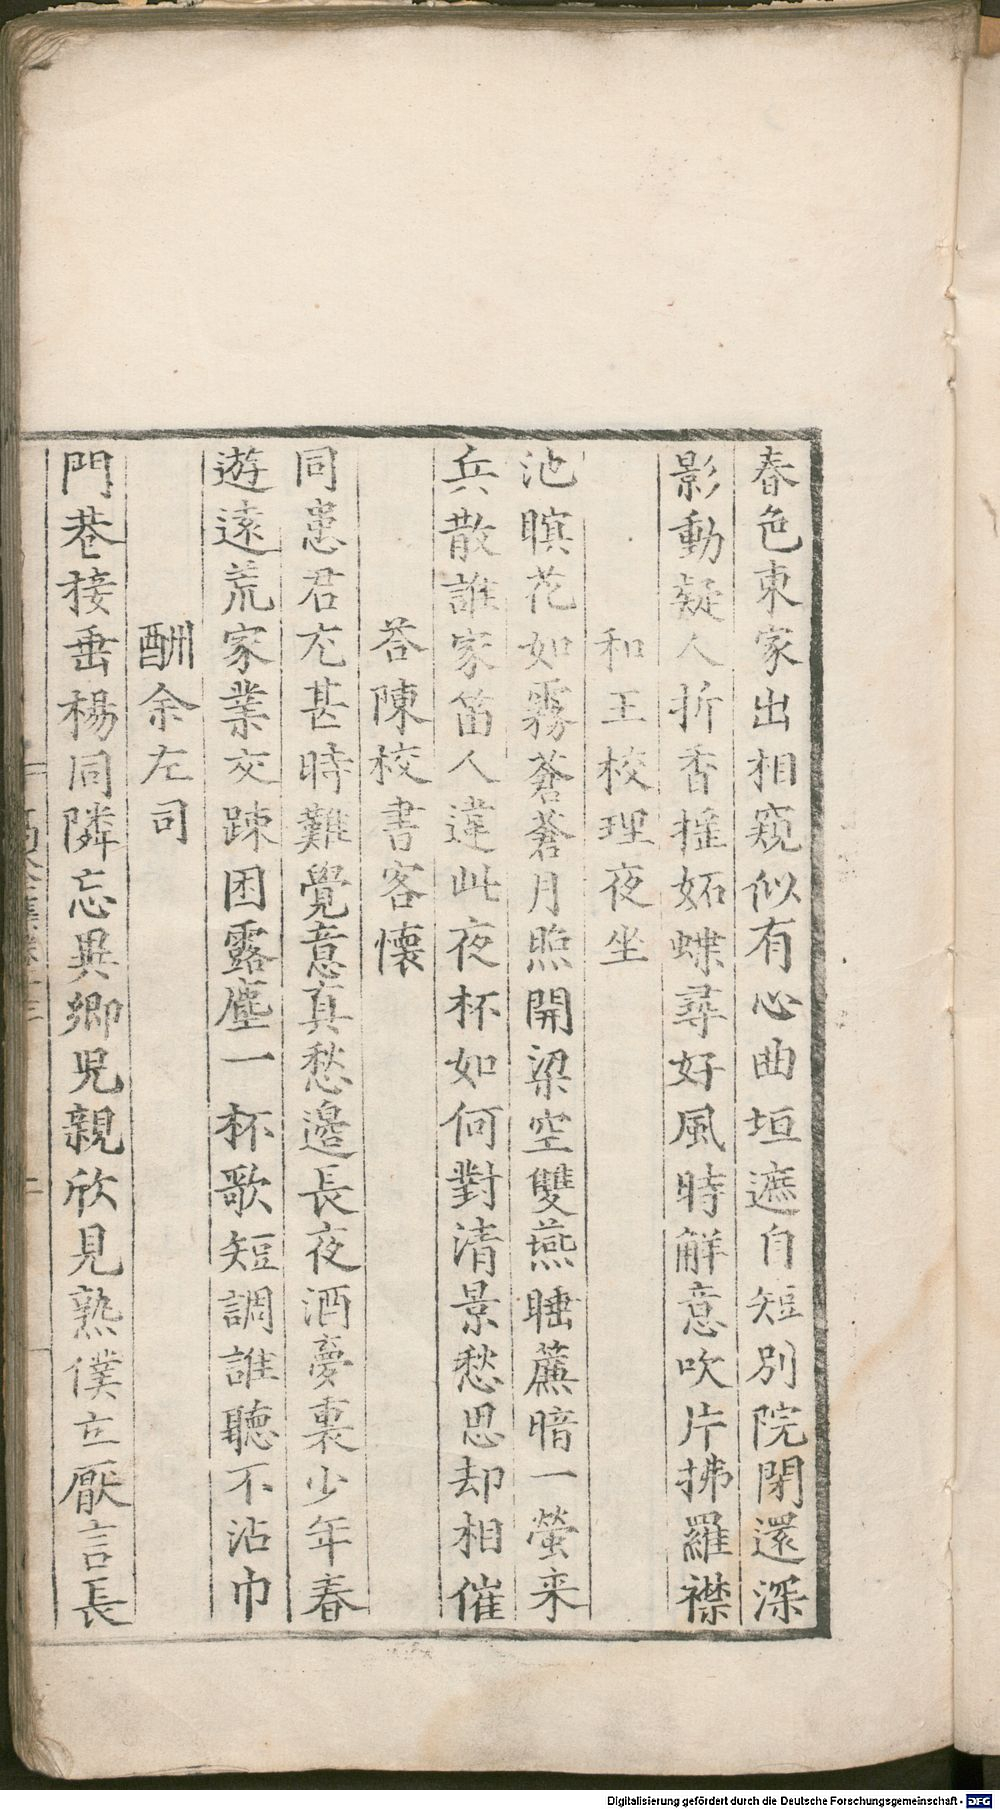 春色東家出相窺似有心曲垣遮自短別院閉還深
影動疑人折香摇妬蝶尋好風時解意吹片拂羅襟
和王校理夜坐
池暝花如霧蒼蒼月照開梁空雙燕睡簾暗一螢来
兵散誰家笛人違此夜杯如何對清景愁思却相催
荅陳校書客懷
同患君尤甚時難覺意真愁邊長夜酒夢裏少年春
遊逺荒家業交踈困露塵一杯歌短調誰聽不沾巾
酬余左司
門巷接垂楊同隣忘異鄉兒親欣見熟僕立厭言長
Digitalisierung gefördert durch die Deutsche Forschungsgemeinschaft - DFG